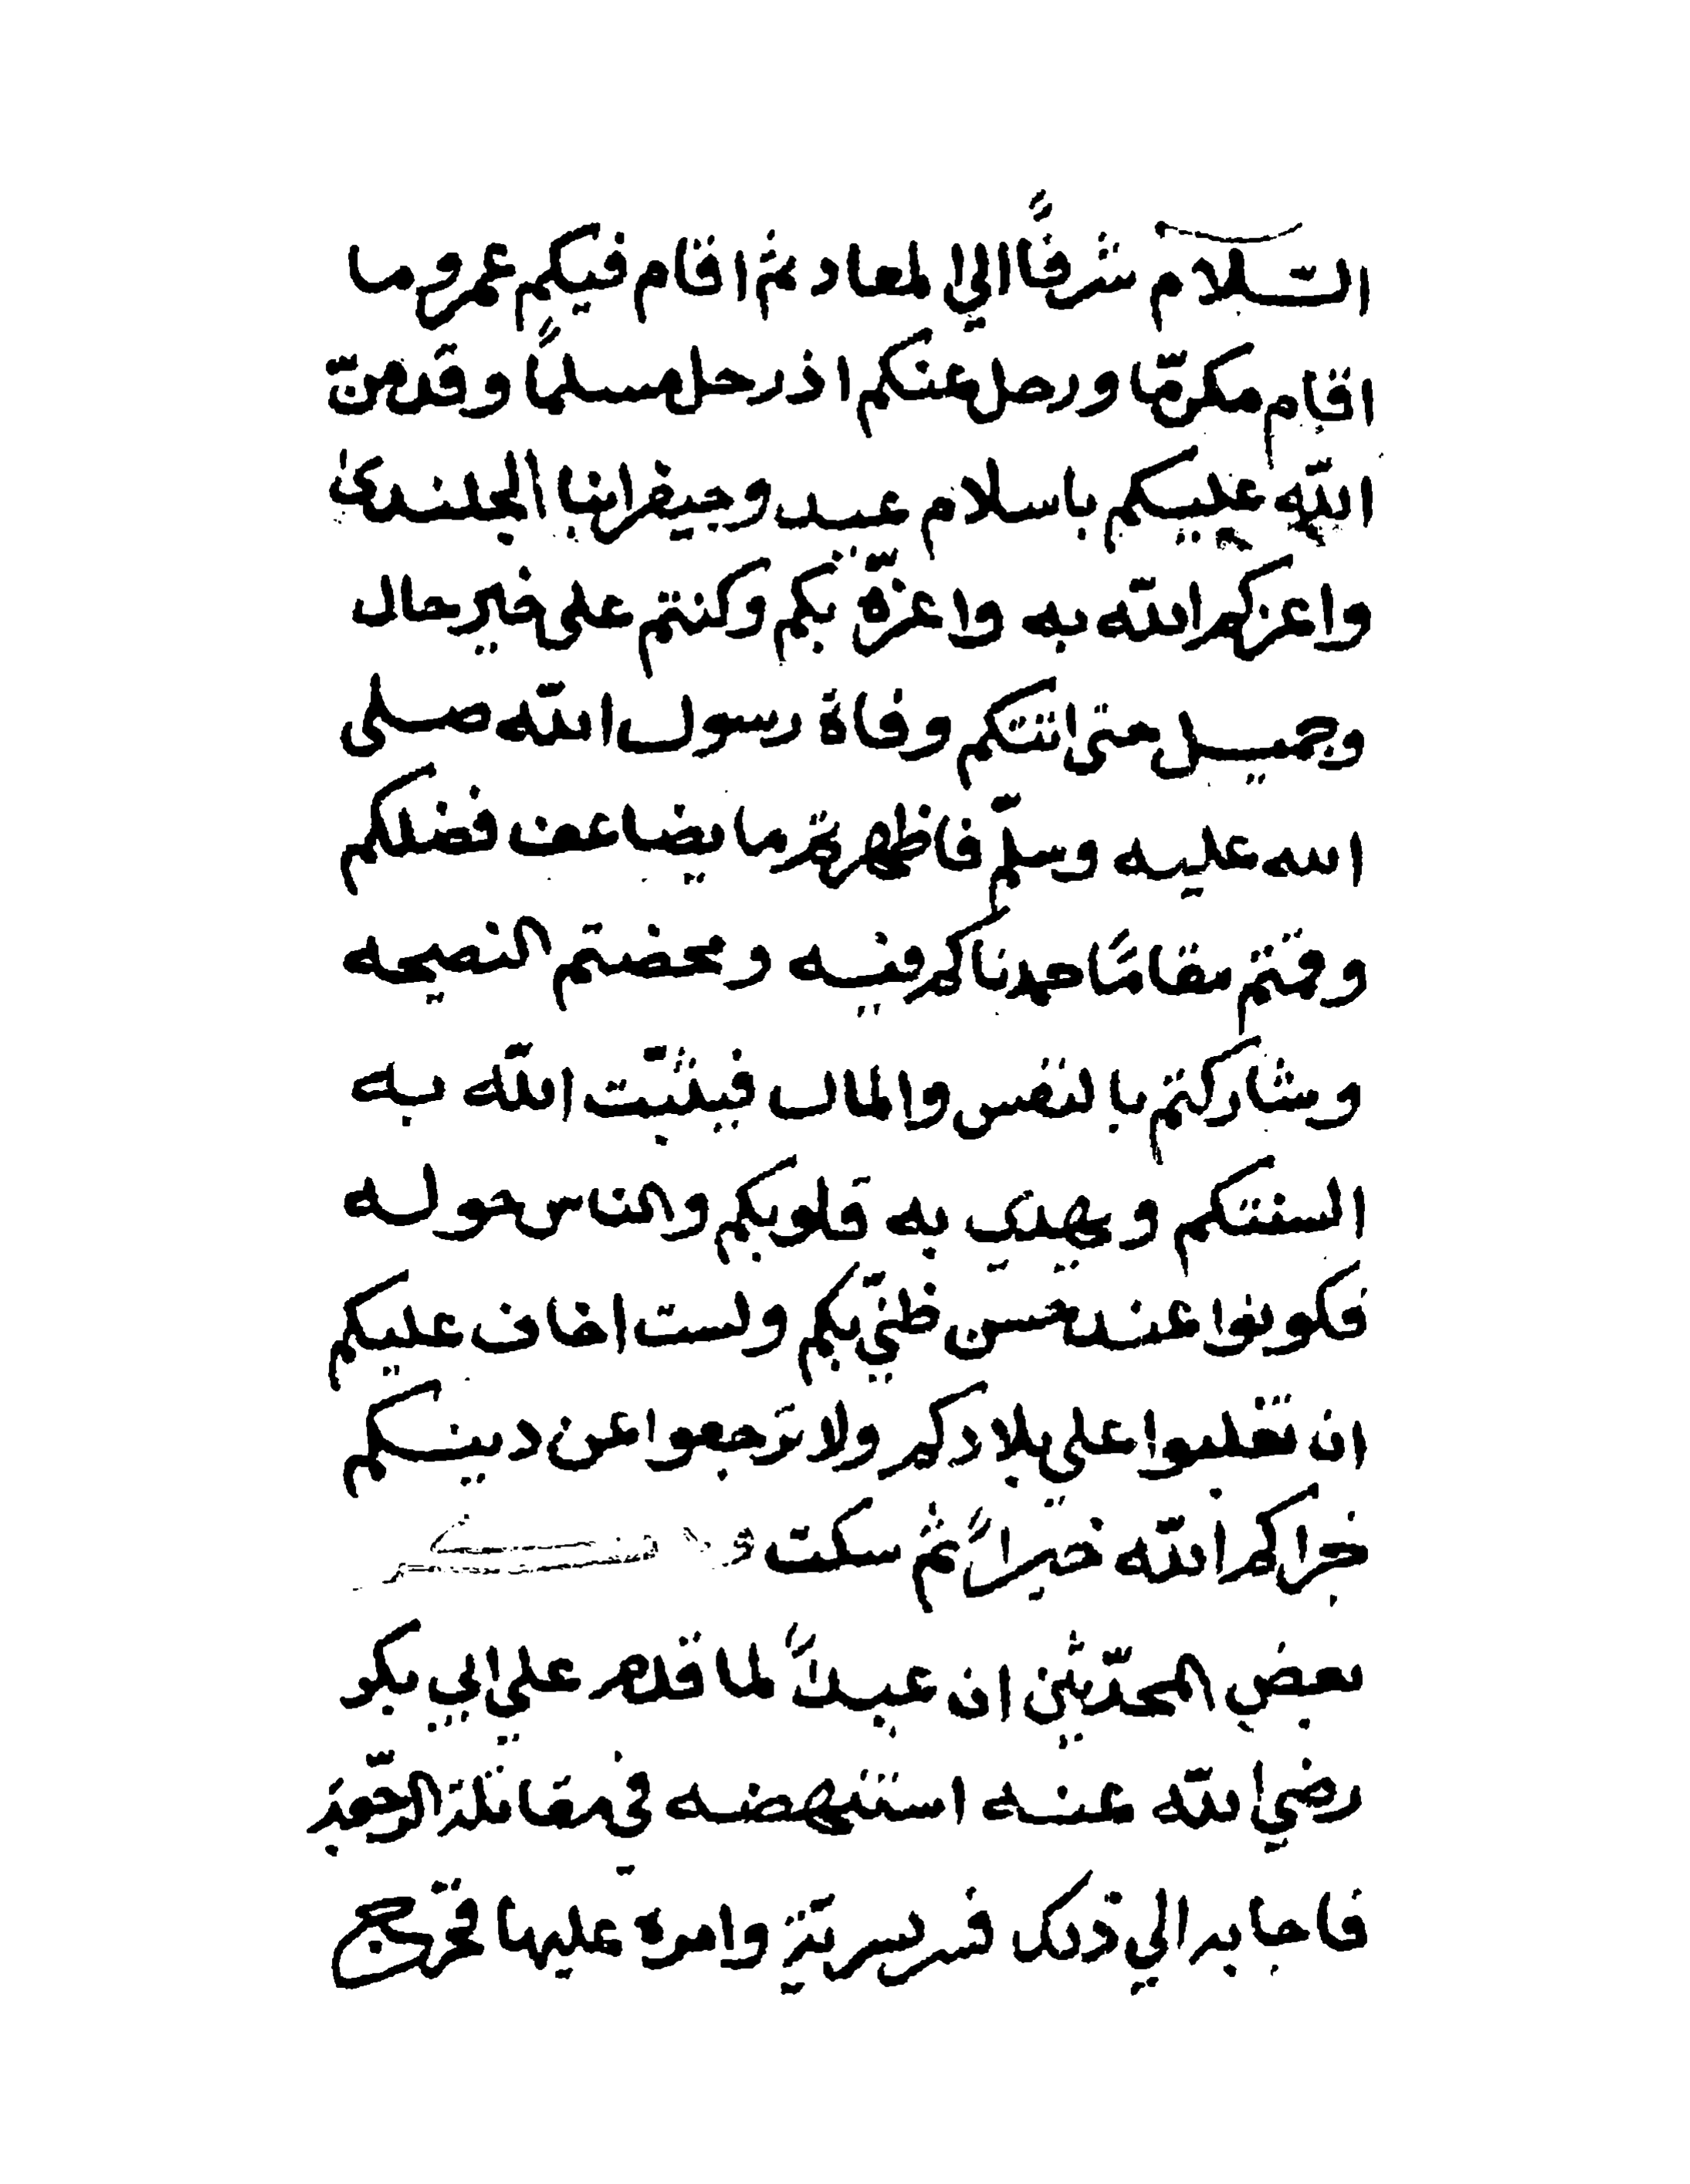 السّلام شرفًا الي المعاد ثم اقام فيكم عمرو ما
اقام مكرمّا ورحل عنكم اذ رحل مسلمًا وقد منّ
اللّه عليكم باسلام عبد وجيفر ابنا الجلندى
واعزكم اللّه به واعزّه بكم وكنتم على خير حال
وجميل حتى اتتكم وفاة رسول اللّه صلى
الله عليه وسلّم فاظهرتم ما يضاعف فضلكم
وقمتم مقامًا حمدناكم فيه ومحضتم النصيحه
وشاركتم بالنفس والمال فيثبّت اللّه به
السنتكم ويهدي به قلوبكم والناس حوله
فكونوا عند حسن ظنيّ بكم ولست اخاف عليكم
ان تغلبوا على بلادكم ولا ترجعوا عن دينكم
جزاكم اللّه خيرًا ثم سكت
بعض المحدّثين ان عبدًا لما قدم على ابي بكر
رضي اللّه عنه استنهضه في مقاتلة
فاجابه الي ذلك فسر سرية وامره عليها فخرج